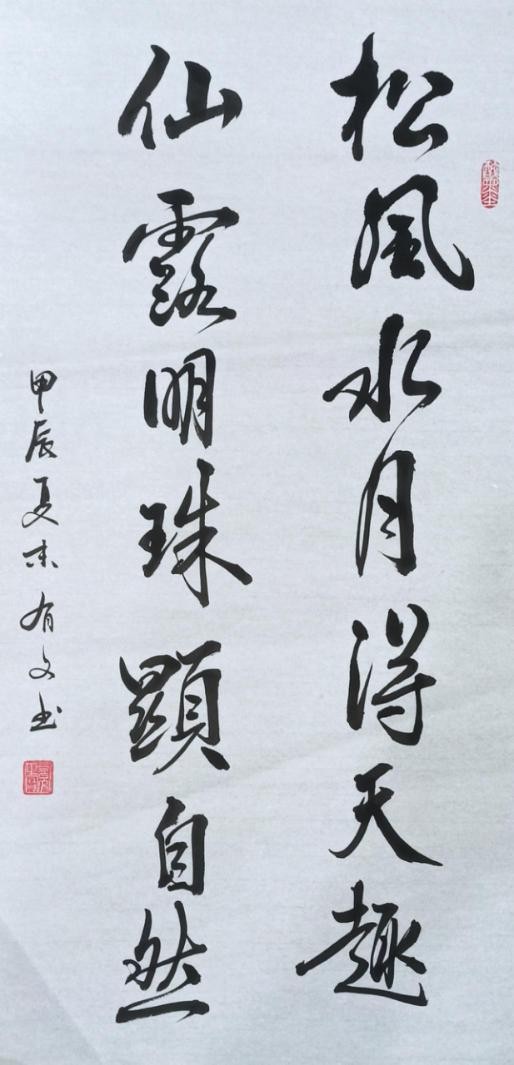 松風水月得天趣
仙露明珠顯自然
甲辰夏末有文书